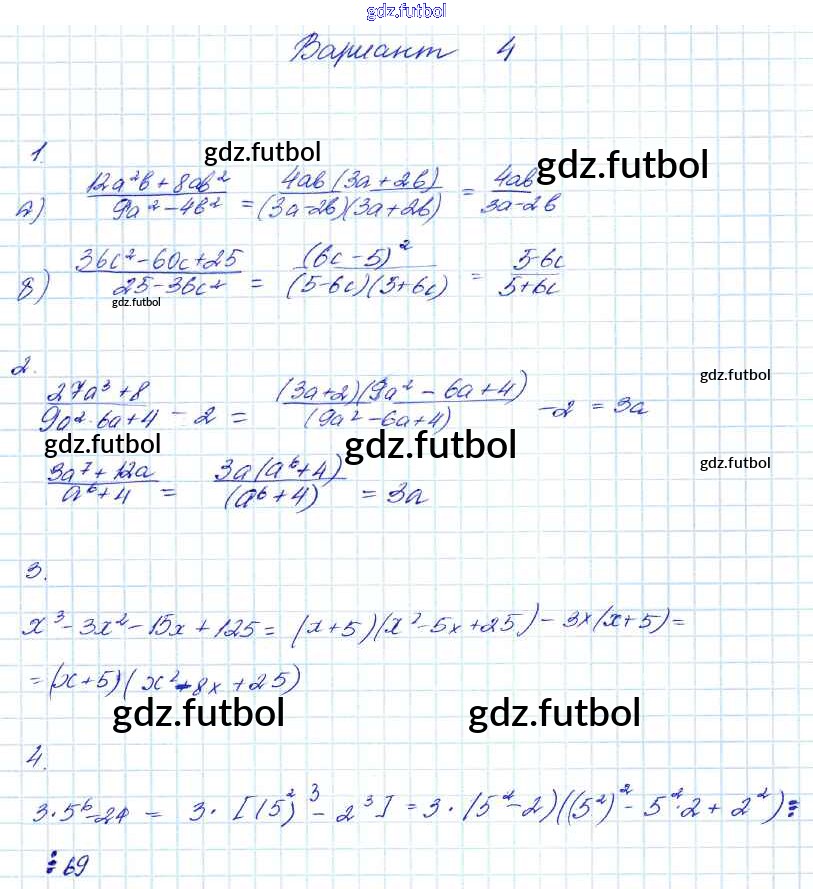 gdz.futbol
Вариант 4
1.
gdz.futbol
gdz.futbol
а) (12a²b + 8ab²)/(9a² - 4b²) = (4ab(3a + 2b))/((3a-2b)(3a+2b)) = 4ab/(3a-2b)
б) (36c² - 60c + 25)/(25 - 36c²) = (6c - 5)²/((5-6c)(5+6c)) = (5-6c)/(5+6c)
gdz.futbol
2.
gdz.futbol
(27a³ + 8)/(9a² - 6a + 4) - 2 = ((3a+2)(9a² - 6a + 4))/(9a² - 6a + 4) - 2 = 3a
gdz.futbol
gdz.futbol
gdz.futbol
(3a⁷ + 12a)/(a⁶ + 4) = (3a(a⁶ + 4))/(a⁶ + 4) = 3a
3.
x³ - 3x² - 15x + 125 = (x+5)(x² - 5x + 25) - 3x(x+5) =
= (x+5)(x² - 8x + 25)
gdz.futbol
gdz.futbol
4.
3·5⁶ - 24 = 3·[(5²)³ - 2³] = 3·(5² - 2)((5²)² - 5²·2 + 2²) ⋮
⋮ 69